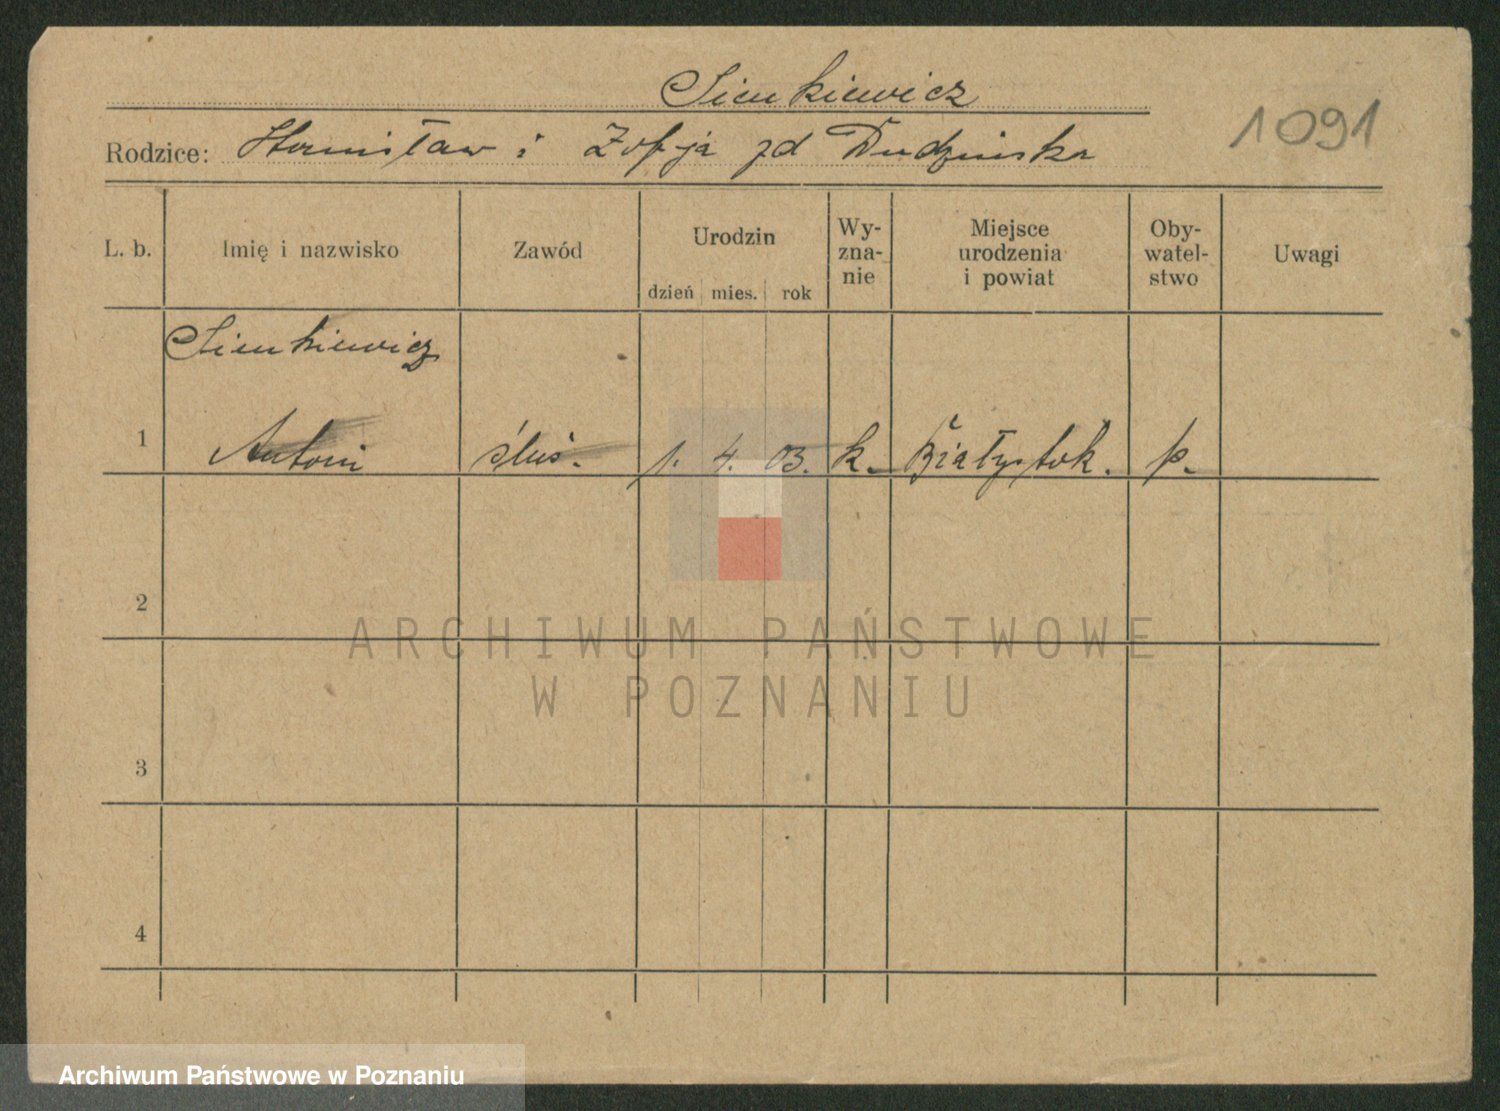 Sienkiewicz
1091
Rodzice: Stanisław i Zofja zd Dudzińska
L. b. Imię i nazwisko Zawód Urodzin dzień mies. rok Wy-zna-nie Miejsce urodzenia i powiat Oby-watel-stwo Uwagi
Sienkiewicz
1 Antoni ślus. 1. 4. 03. k. Białystok. p.
2
ARCHIWUM PAŃSTWOWE
W POZNANIU
3
4
Archiwum Państwowe w Poznaniu